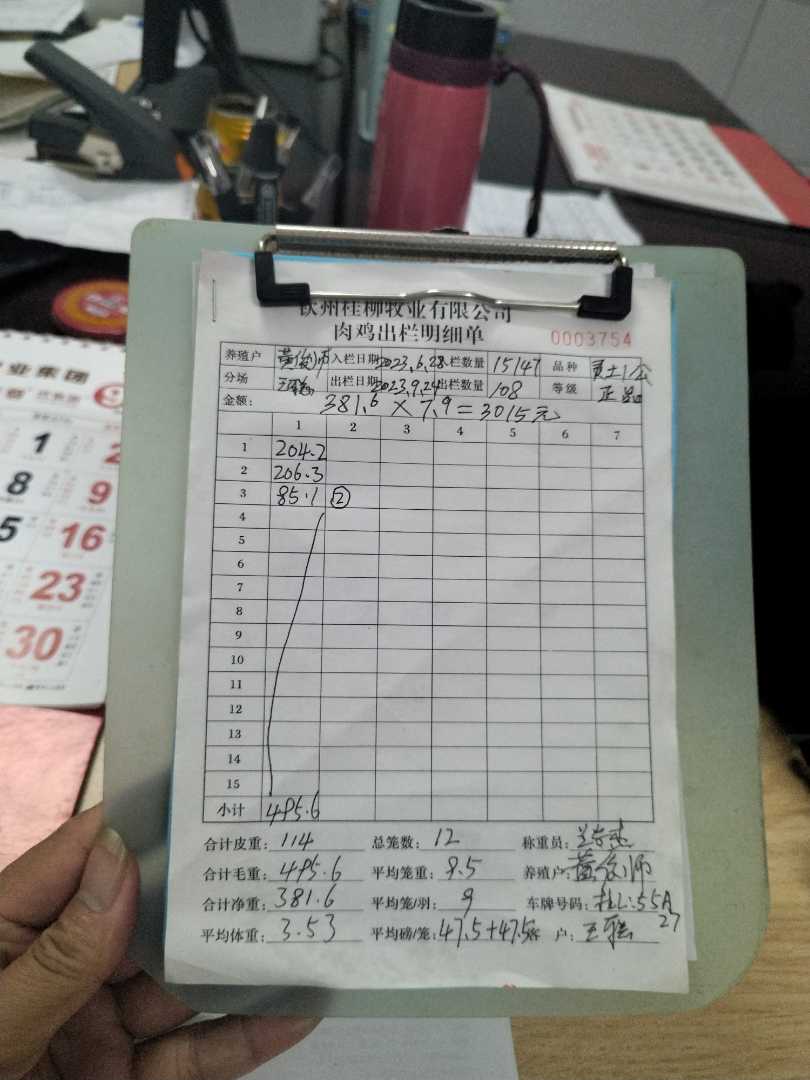 钦州桂柳牧业有限公司
肉鸡出栏明细单
0003754
养殖户 黄俊师 入栏日期 2023.6.28 入栏数量 15147 品种
分场 出栏日期 2023.9.24 出栏数量 108 等级 正品
金额: 381.6 × 7.9 = 3015元
1 2 3 4 5 6 7
1 204.2
2 206.3
3 85.1 ②
4
5
6
7
8
9
10
11
12
13
14
15
小计 495.6
合计皮重: 114 总笼数: 12 称重员:
合计毛重: 495.6 平均笼重: 9.5 养殖户: 黄俊师
合计净重: 381.6 平均笼/羽: 9 车牌号码: 桂L:55A
27
平均体重: 3.53 平均磅/笼: 47.5+47.5 客户:
业集团
1 2
8 9
5 16
23
30